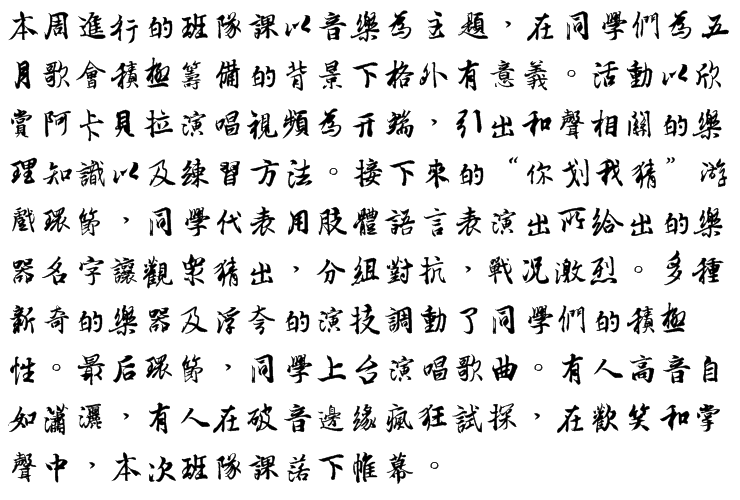 本周進行的班隊課以音樂為主題，在同學們為五
月歌會積極籌備的背景下格外有意義。活動以欣
賞阿卡貝拉演唱視頻為開端，引出和聲相關的樂
理知識以及練習方法。接下來的“你划我猜”游
戲環節，同學代表用肢體語言表演出所給出的樂
器名字讓觀眾猜出，分組對抗，戰況激烈。多種
新奇的樂器及浮夸的演技調動了同學們的積極
性。最后環節，同學上台演唱歌曲。有人高音自
如瀟灑，有人在破音邊緣瘋狂試探，在歡笑和掌
聲中，本次班隊課落下帷幕。